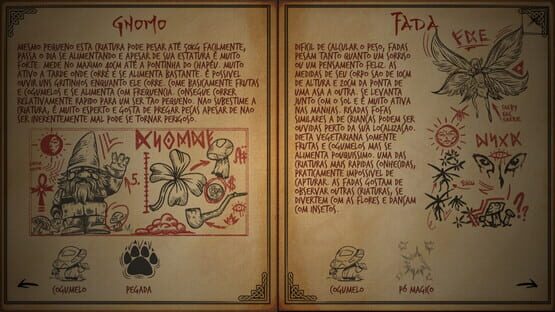 Gnomo
MESMO PEQUENO ESTA CRIATURA PODE PESAR ATÉ 50KG FACILMENTE,
PASSA O DIA SE ALIMENTANDO E APESAR DE SUA ESTATURA É MUITO
FORTE. MEDE NO MAXIMO 40CM ATÉ A PONTINHA DO CHAPÉU. MUITO
ATIVO A TARDE ONDE CORRE E SE ALIMENTA BASTANTE. É POSSIVEL
OUVIR UNS GRITINHOS ENQUANTO ELE CORRE. COME BASICAMENTE FRUTAS
E COGUMELOS E SE ALIMENTA COM FREQUENCIA. CONSEGUE CORRER
RELATIVAMENTE RAPIDO PARA UM SER TAO PEQUENO. NAO SUBESTIME A
CRIATURA, É MUITO ESPERTO E GOSTA DE PREGAR PEÇAS APESAR DE NAO
SER INERENTEMENTE MAL PODE SE TORNAR PERIGOSO.
COGUMELO
PEGADA
FADA
DIFICIL DE CALCULAR O PESO, FADAS
PESAM TANTO QUANTO UM SORRISO
OU UM PENSAMENTO FELIZ. AS
MEDIDAS DE SEU CORPO SAO DE 10CM
DE ALTURA E 20CM DA PONTA DE
UMA ASA A OUTRA. SE LEVANTA
JUNTO COM O SOL E É MUITO ATIVA
NAS MANHAS. RISADAS FOFAS
SIMILARES A DE CRIANÇAS PODEM SER
OUVIDAS PERTO DA SUA LOCALIZAÇAO.
DIETA VEGETARIANA SOMENTE
FRUTAS E COGUMELOS MAS SE
ALIMENTA POUQUISSIMO. UMA DAS
CRIATURAS MAIS RAPIDAS CONHECIDAS,
PRATICAMENTE IMPOSSIVEL DE
CAPTURAR. AS FADAS GOSTAM DE
OBSERVAR OUTRAS CRIATURAS, SE
DIVERTEM COM AS FLORES E DANÇAM
COM INSETOS.
COGUMELO
PÓ MAGICO